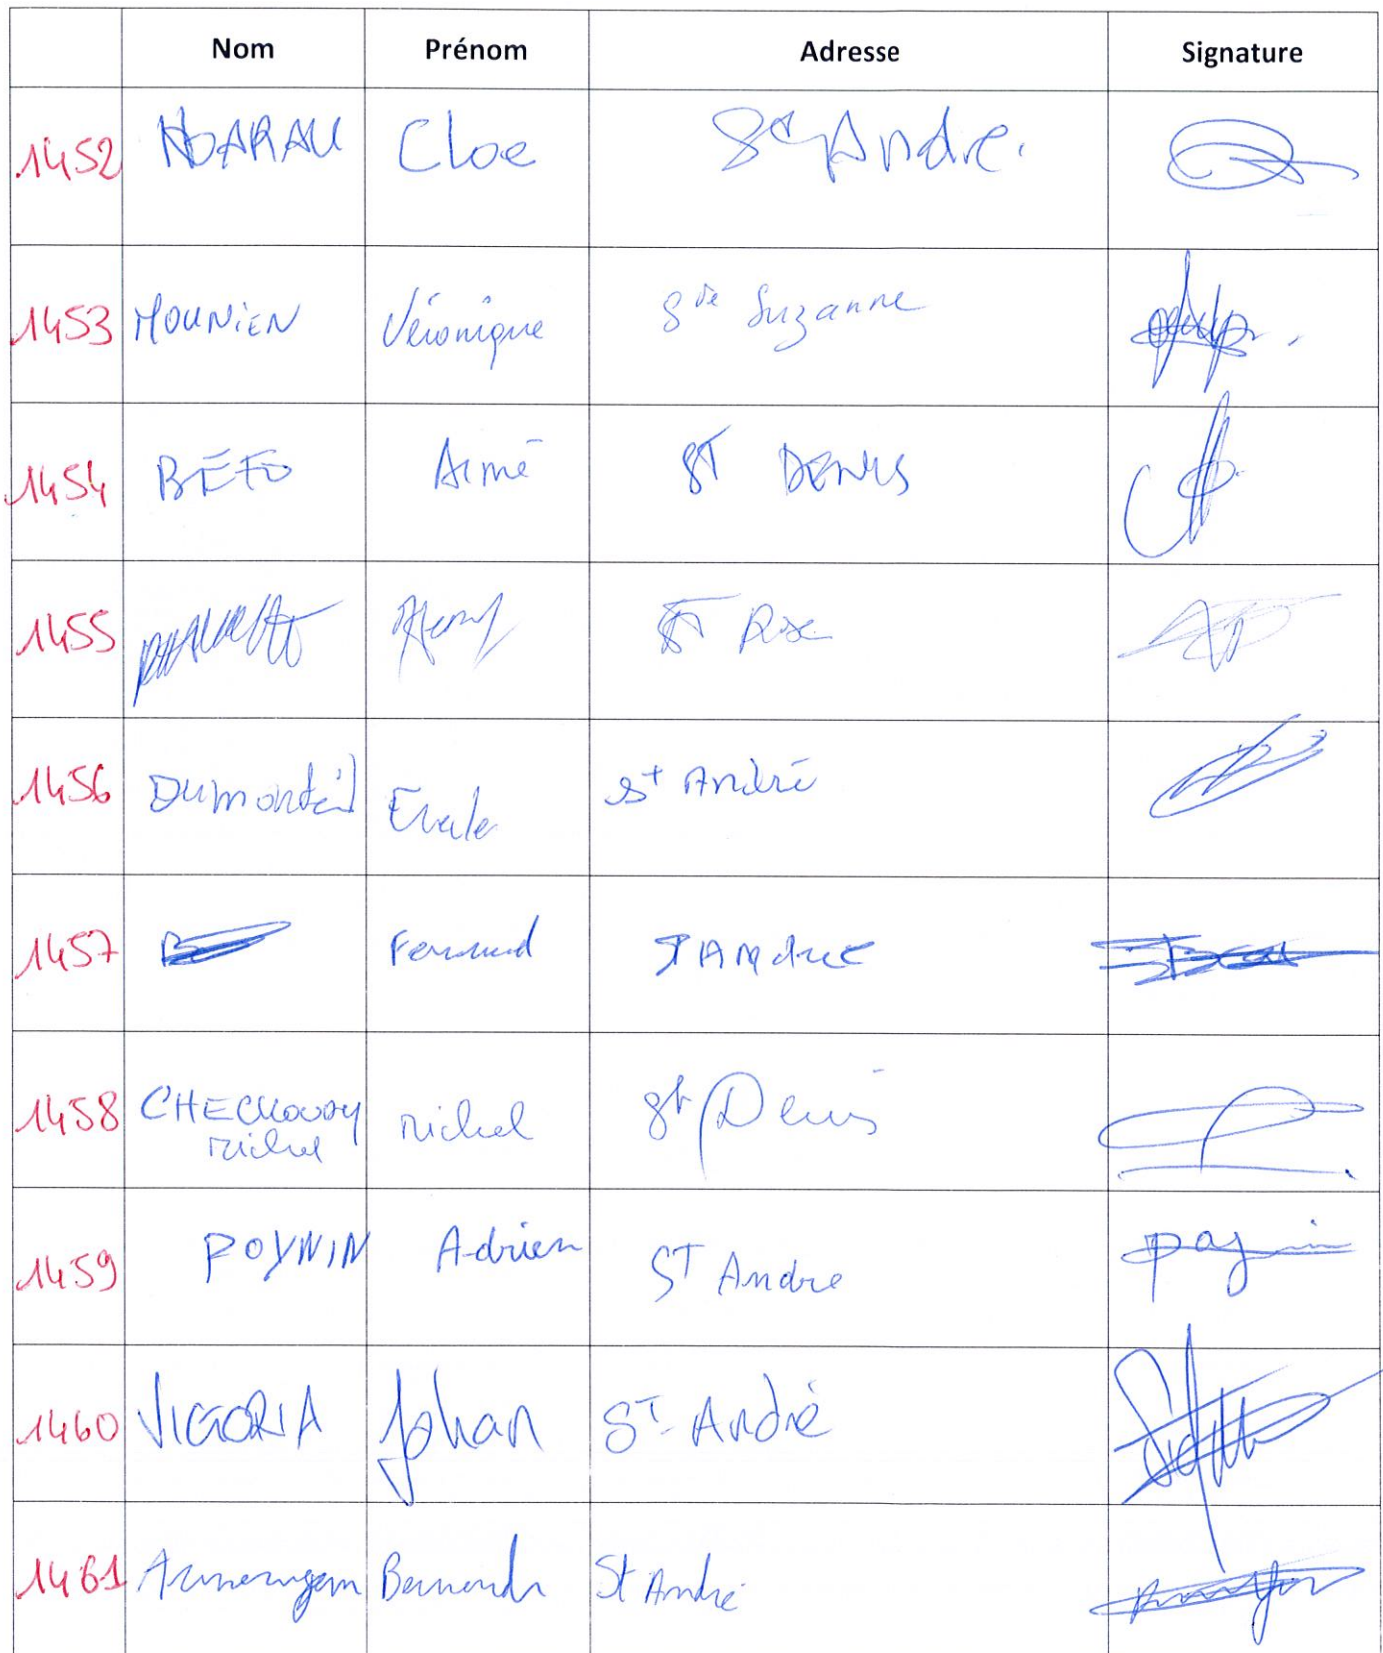 Nom Prénom Adresse Signature
1452 NDARAU Cloe St Andre.
1453 MOUNIEN Véronique Ste Suzanne
1454 BÉFO Aimé ST DENIS
1455 ST Rose
1456 Dumonteil St André
1457 Fernand ST Andre
1458 CHECKOURY Michel St Denis
Michel
1459 POYNIN Adrien ST Andre
1460 VICTORIA Johan ST André
1461 St André